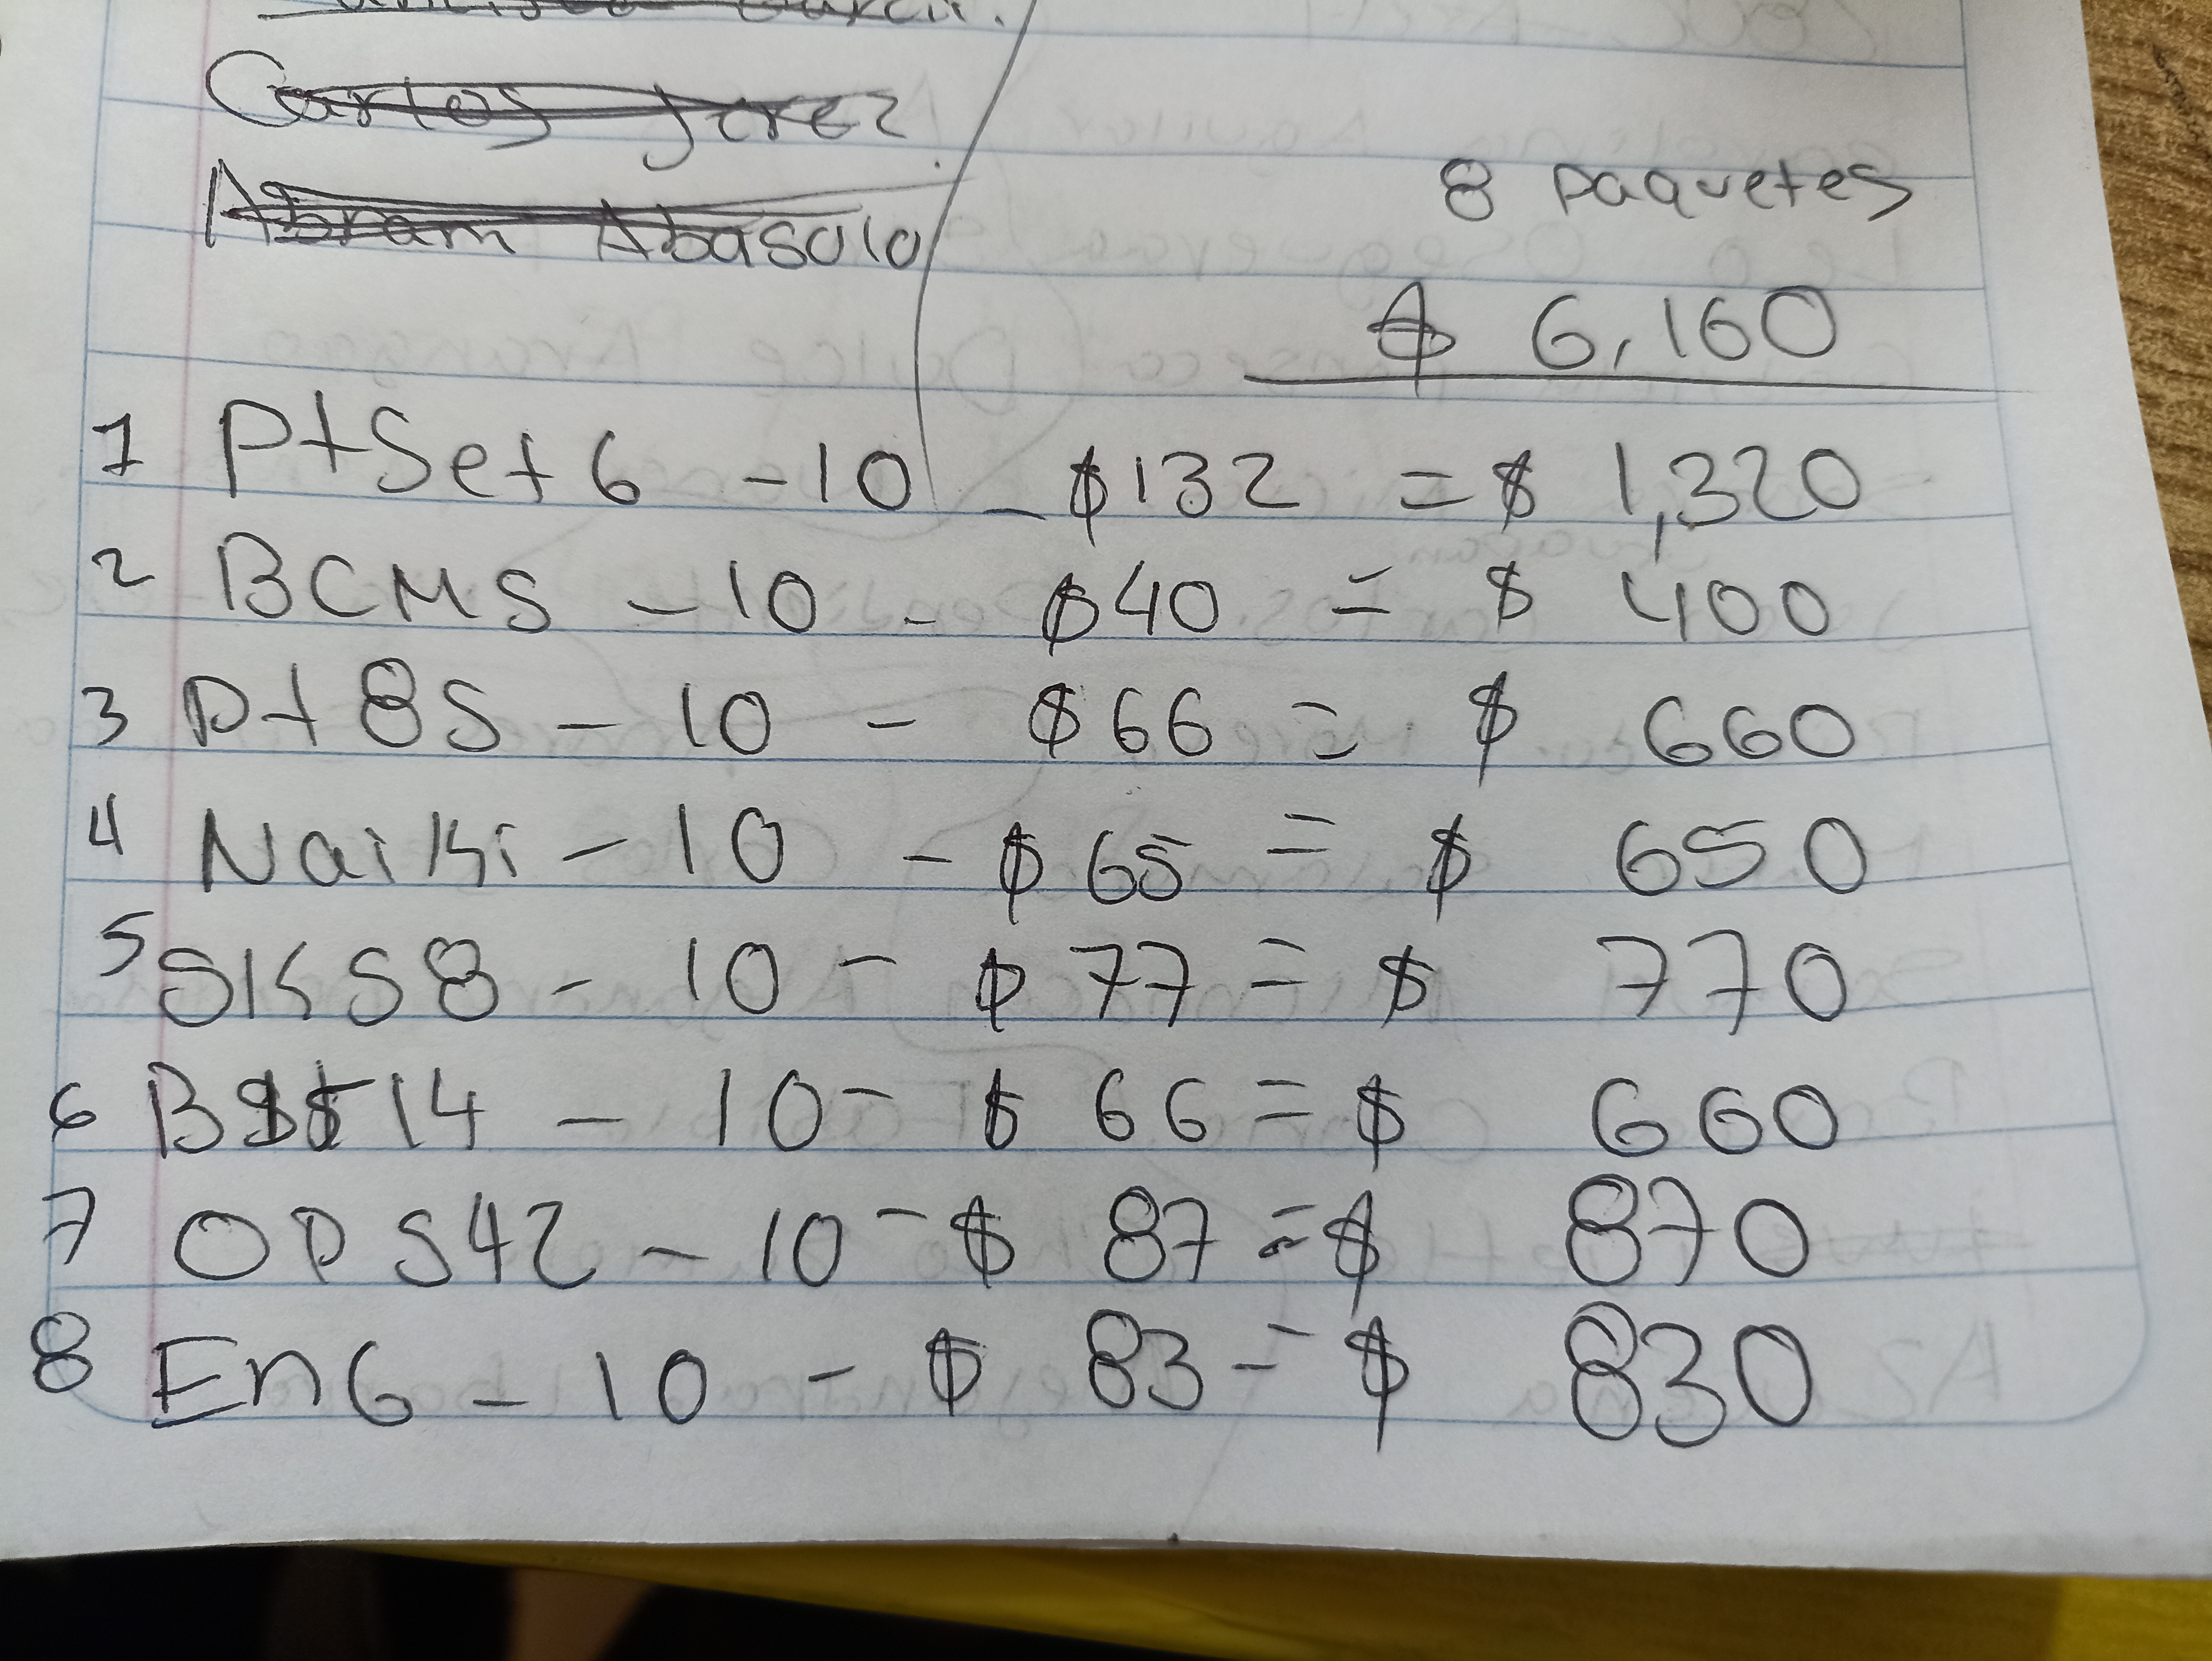 Carlos Jerez
Abram Abasolo
8 paquetes
$ 6,160
1 PtSet6 - 10 - $132 = $ 1,320
2 BCMS - 10 - $40 = $ 400
3 Pt8S - 10 - $66 = $ 660
4 Naiki - 10 - $65 = $ 650
5 SKS8 - 10 - $77 = $ 770
6 14 - 10 - $ 66 = $ 660
7 OPS42 - 10 - $ 87 = $ 870
8 EnG - 10 - $ 83 = $ 830